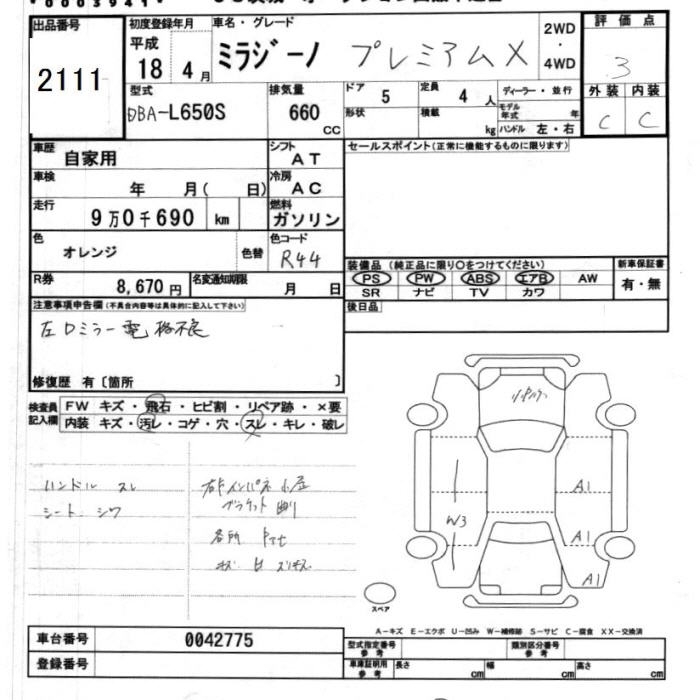 出品番号
2111
初度登録年月
平成
18 4月
車名・グレード
ミラジーノ プレミアムX
2WD
・
4WD
評価点
3
外装 内装
C C
型式
DBA-L650S
排気量
660
CC
ドア
5
定員
4 人
形状
積載
kg
ディーラー・並行
モデル年式 年
ハンドル 左・右
車歴
自家用
シフト
AT
セールスポイント(正常に機能するものに限ります)
車検
年 月( 日)
冷房
AC
走行
9万0千690 km
燃料
ガソリン
色
オレンジ
色替
色コード
R44
装備品 (純正品に限り〇をつけてください)
新車保証書
PS PW ABS エアB AW
SR ナビ TV カワ
有・無
R券
8,670円
名変通知期限
月 日
後日品
注意事項申告欄(不具合内容等は具体的に記入して下さい)
左Dミラー電格不良
修復歴 有〔箇所 〕
検査員記入欄
FW キズ・飛石・ヒビ割・リペア跡・×要
内装 キズ・汚レ・コゲ・穴・スレ・キレ・破レ
ハンドル スレ
シート シワ
ブラケット 曲り
各所
W3
A1
A1
A1
スペア
A-キズ E-エクボ U-凹み W-補修跡 S-サビ C-腐食 XX-交換済
車台番号
0042775
登録番号
型式指定番号
参考
類別区分番号
参考
車庫証明用
参考
長さ cm
幅 cm
高さ cm